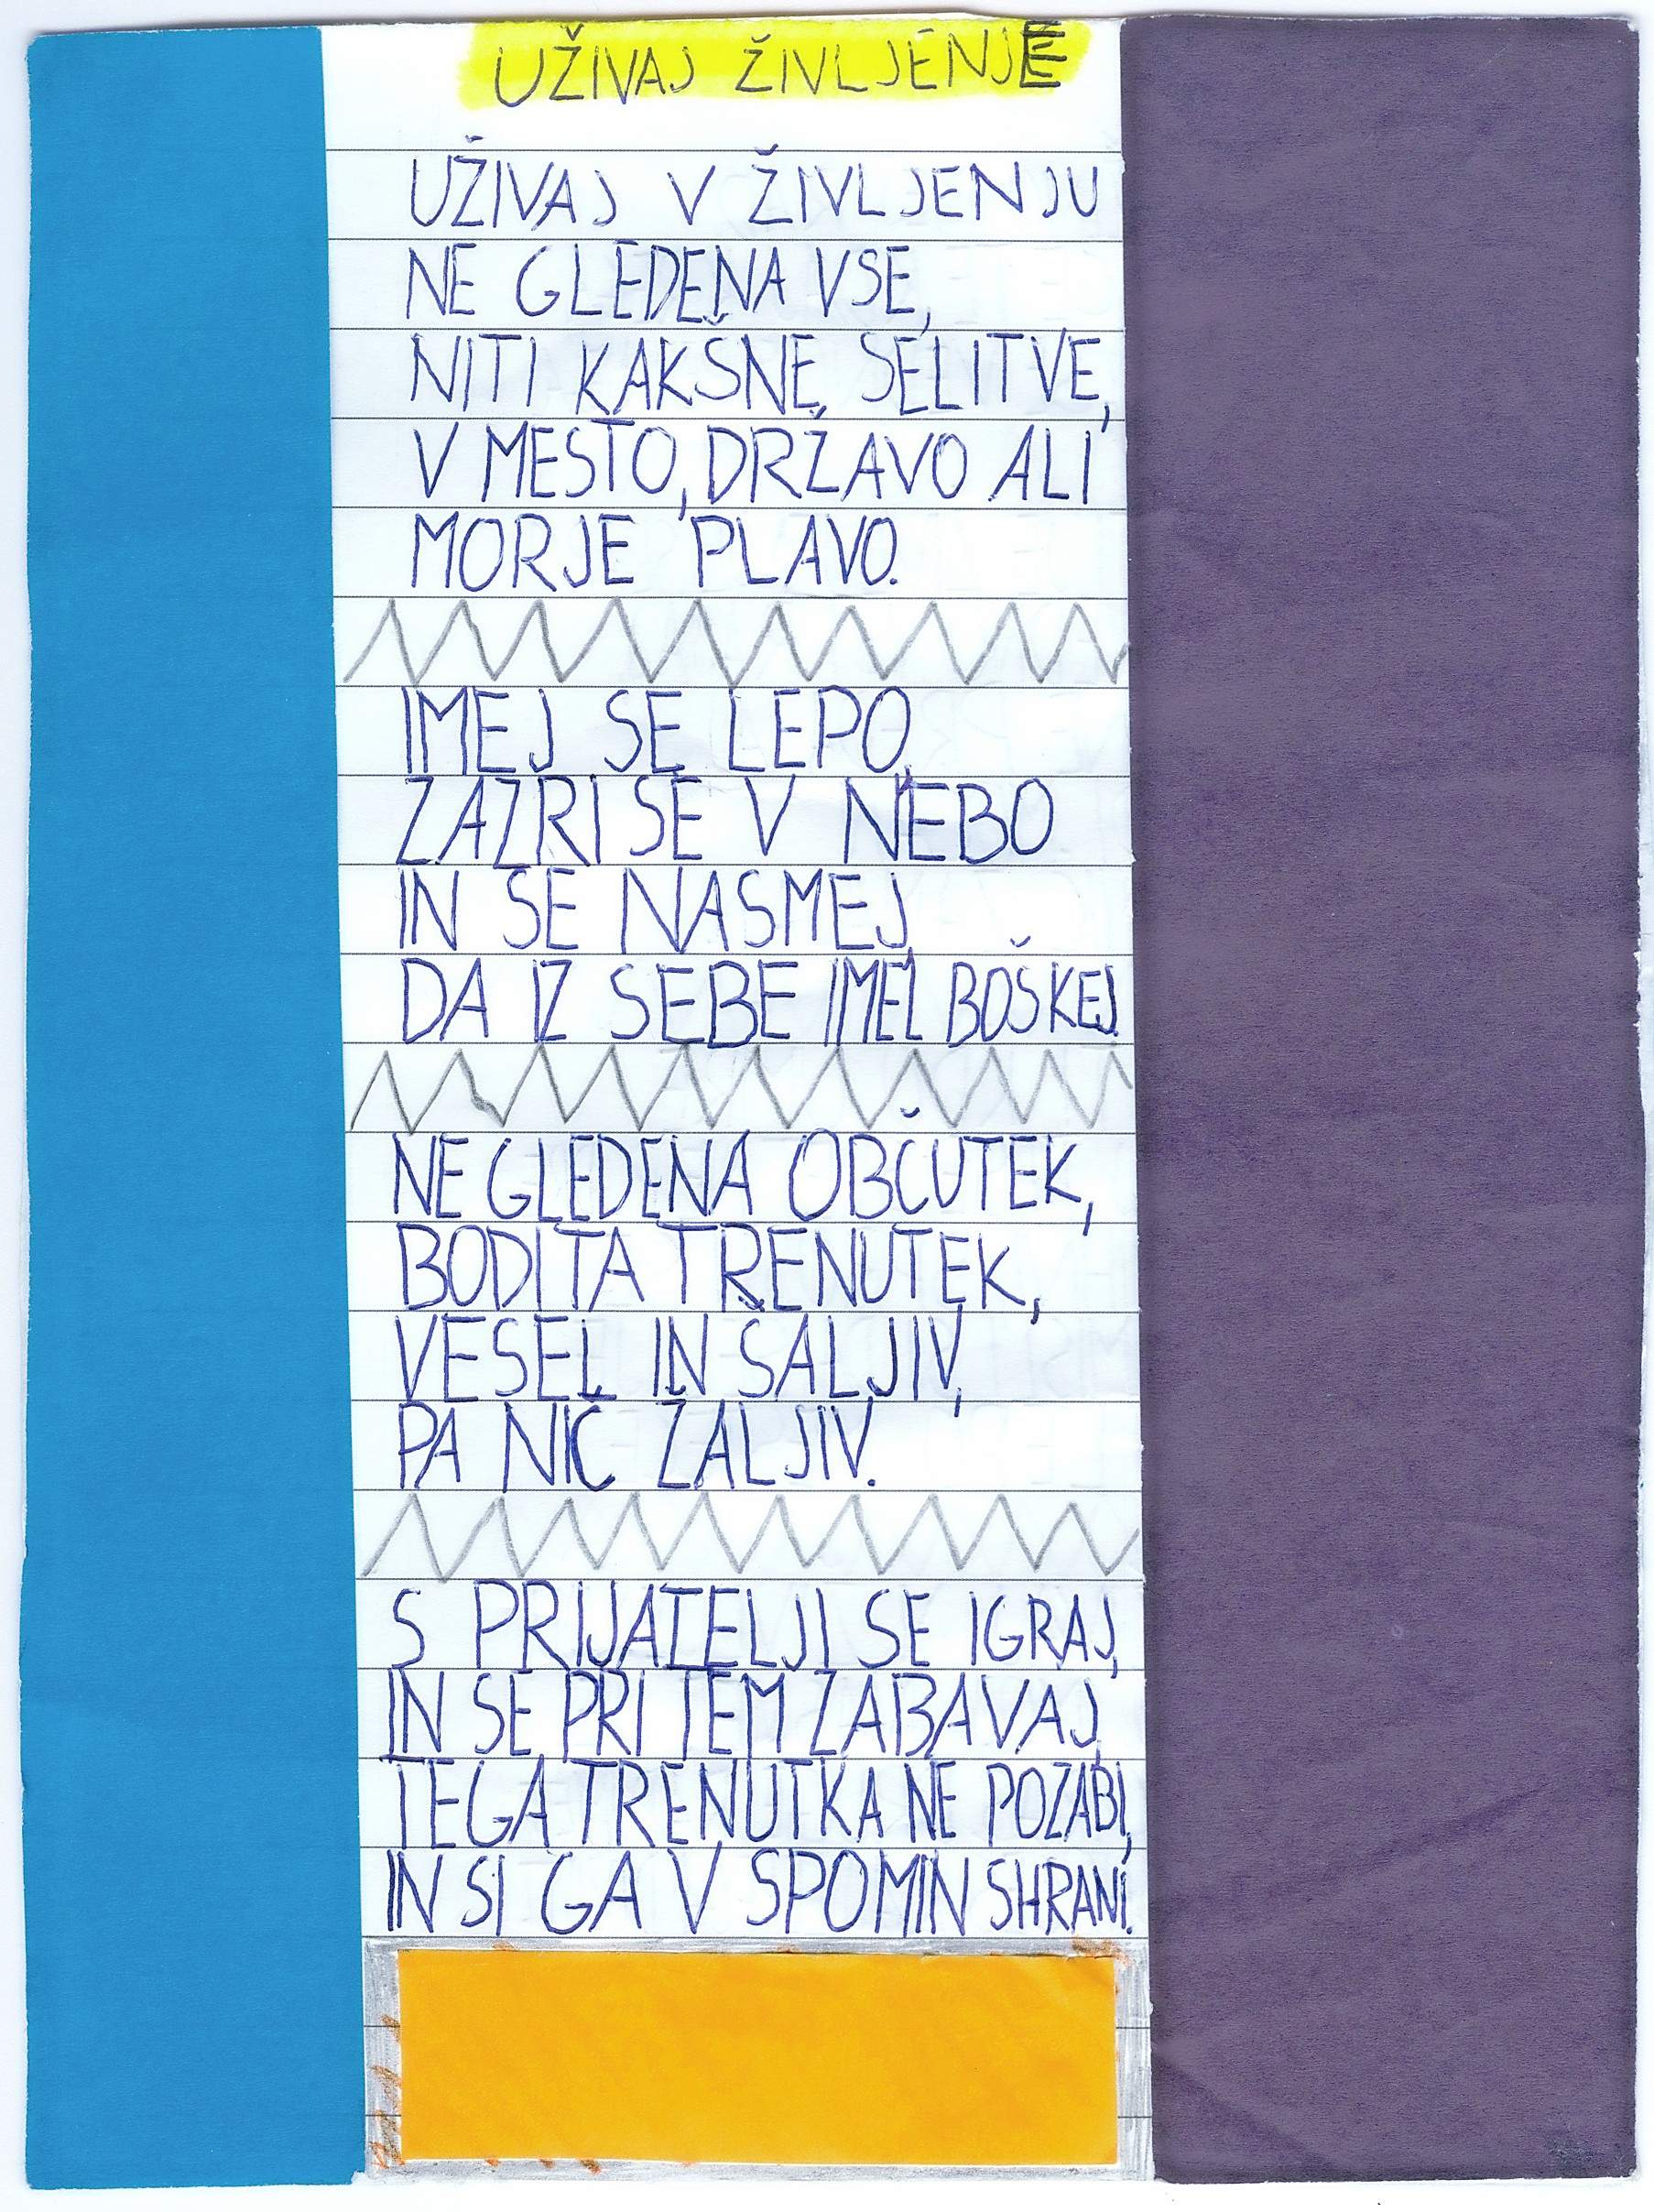 UŽIVAJ ŽIVLJENJE
UŽIVAJ V ŽIVLJENJU
NE GLEDENA VSE,
NITI KAKŠNE SELITVE,
V MESTO, DRŽAVO ALI
MORJE PLAVO.
IMEJ SE LEPO,
ZAZRI SE V NEBO
IN SE NASMEJ,
DA IZ SEBE IMEL BOŠ KEJ.
NE GLEDENA OBČUTEK,
BODI TA TRENUTEK,
VESEL IN ŠALJIV,
PA NIČ ŽALJIV.
S PRIJATELJI SE IGRAJ,
IN SE PRI TEM ZABAVAJ,
TEGA TRENUTKA NE POZABI,
IN SI GA V SPOMIN SHRANI.